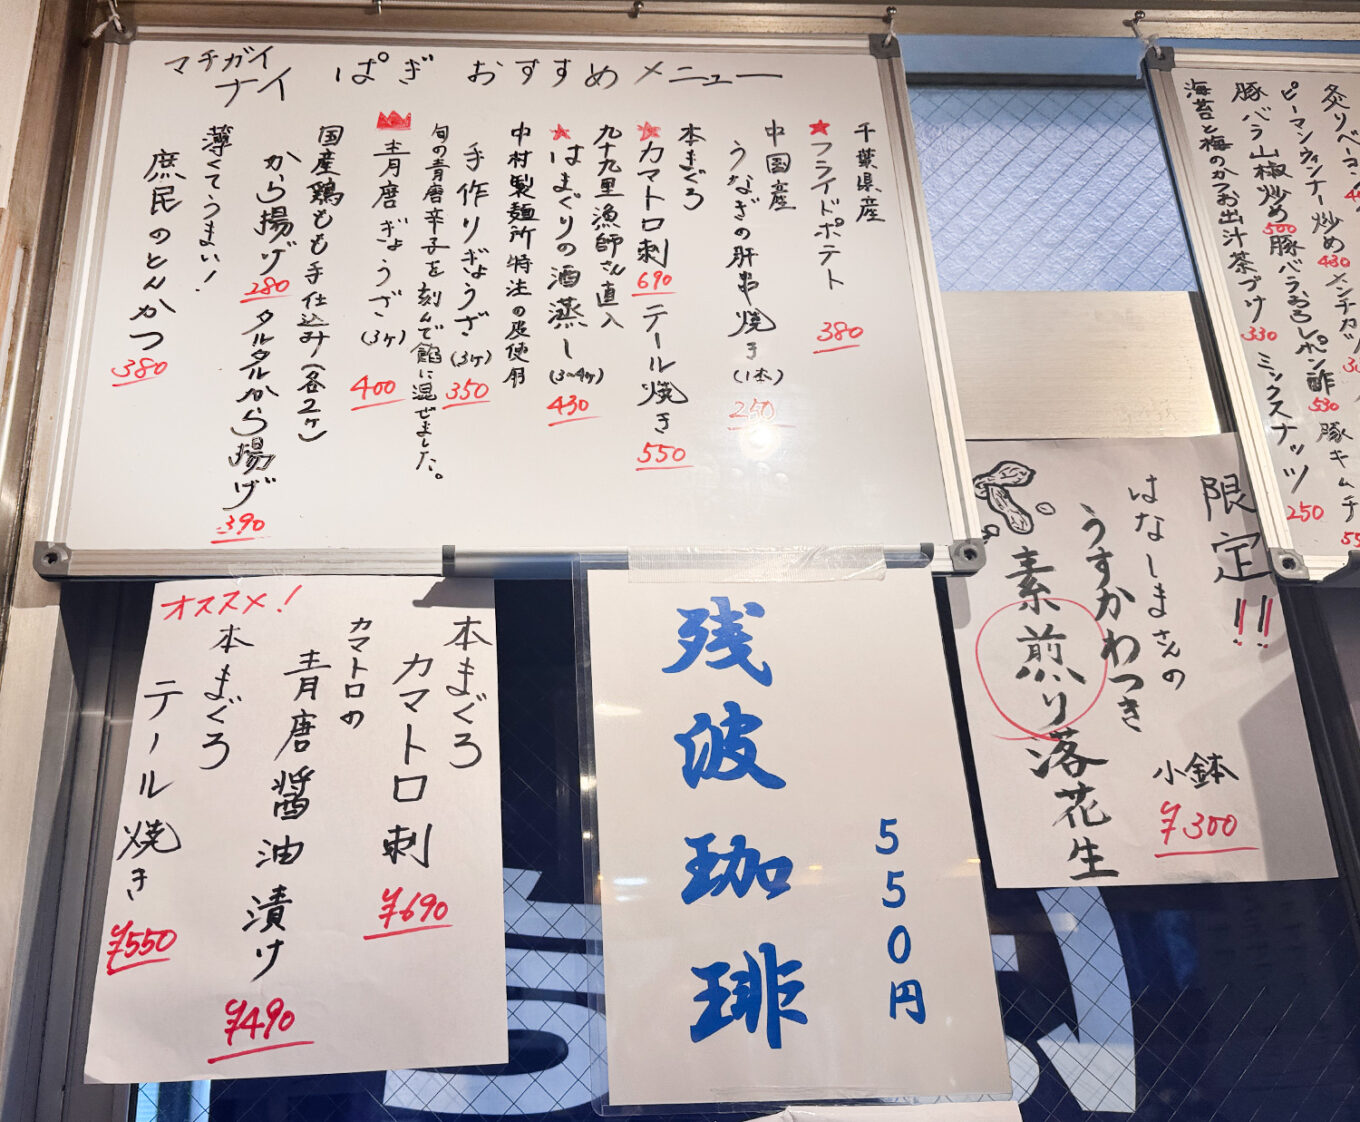 マチガイ
ナイ
ぱぎ おすすめメニュー
千葉県産
★フライドポテト 380
中国産
うなぎの肝串焼き(1本) 250
本まぐろ
★カマトロ刺 690 テール焼き 550
九十九里漁師さん直入
★はまぐりの酒蒸し(3~4ケ) 430
中村製麺所特注の皮使用
手作りぎょうざ(3ケ) 350
旬の青唐辛子を刻んで餡に混ぜました。
青唐ぎょうざ(3ケ) 400
国産鶏もも手仕込み(各2ケ)
から揚げ 280 タルタルから揚げ 390
薄くてうまい!
庶民のとんかつ 380
ピーマンウィンナー炒め 430 メンチカツ
豚バラ山椒炒め 500 豚バラおろしポン酢 530 豚キムチ
海苔と梅のかつお出汁茶づけ 330 ミックスナッツ 250
オススメ!
本まぐろ
カマトロ刺
¥690
カマトロの
青唐醤油漬け
¥490
本まぐろ
テール焼き
¥550
残波珈琲
550円
限定!!
はなしまさんの
うすかわつき
素煎り落花生
小鉢
¥300